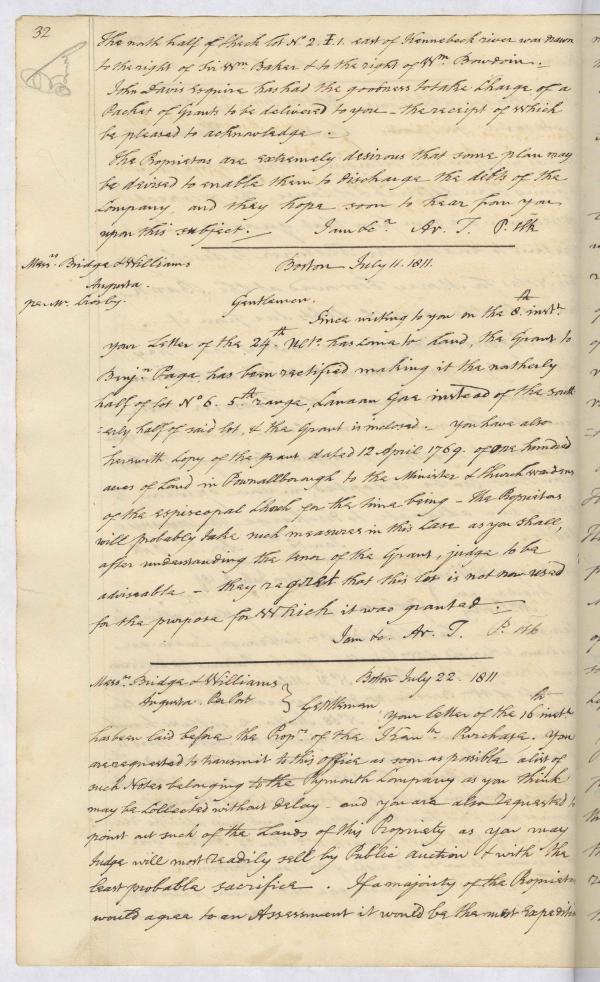 32
The north half of back lot No 2. I. 1. east of Kennebeck river was drawn
to the right of Sir Wm. Baker & to the right of Wm. Bowdoin.
John Davis Esquire has had the goodness to take charge of a
Packet of Grants to be delivered to you - the receipt of which
be pleased to acknowledge.
The Proprietors are extremely desirous that some plan may
be devised to enable them to discharge the debts of the
Company and they hope soon to hear from you
upon this subject. I am &c. Ar. T. P. Clk
Messrs. Bridge & Williams Boston July 11. 1811.
Augusta.
per Mr. Crosby. Gentlemen.
Since writing to you on the 8th. inst.
your Letter of the 24th. Ulto. has come to hand, the Grant to
Benjn. Page has been rectified making it the northerly
half of lot No 6. 5th range, Canaan Gore instead of the south
=erly half of said lot, & the Grant is inclosed. you have also
herewith Copy of the grant dated 12 April 1769. of one hundred
acres of Land in Pownallborough to the Minister & Church wardens
of the Episcopal Church for the time being - the Proprietors
will probably take such measures in this Case as you shall,
after understanding the tenor of the Grant, judge to be
adviseable - they regret that this lot is not now used
for the purpose for which it was granted.
I am &c. Ar. T. P. Clk
Messrs. Bridge & Williams Boston July 22. 1811
Augusta. Per Post } Gentleman
your letter of the 16th inst
has been laid before the Proprs. of the Purchase. You
are requested to transmit to this office as soon as possible a list of
such Notes belonging to the Plymouth Company as you think
may be collected without delay - and you are also requested to
point out such of the Lands of this Propriety as you may
Judge will most readily sell by Public auction & with the
least probable sacrifice. If a majority of the Proprietors
would agree to an Assessment it would be the most Expeditio